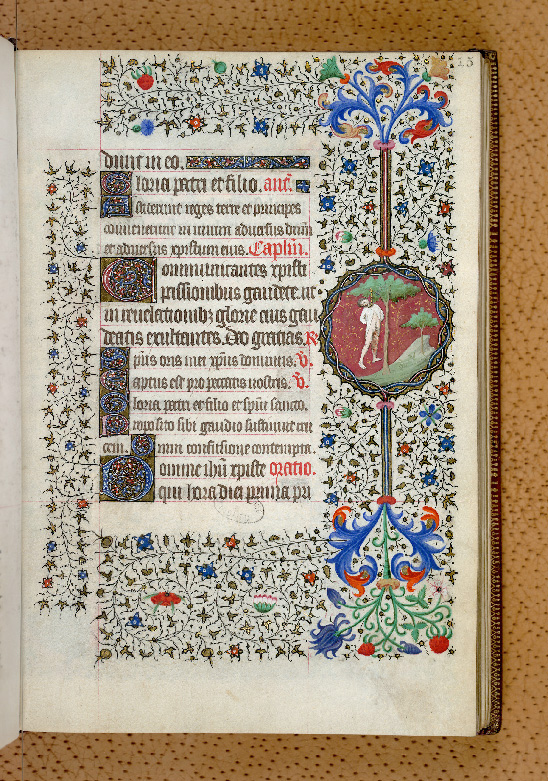 15
dunt in eo. 
loria patri et filio. añt.
stiterunt reges terre et principes
convenerunt in unum adversus dñm
et adversus xpistum eius. Caplm.
ommunicantes xpisti
passionibus gaudete. ut
in revelationibz glorie eius gau
deatis exultantes. Deo gratias. R
pñs ons
xpūs domini. V.
aptus est pro peccatis nostris. V.
loria patri et filio et spūi sancto.
roposito sibi gaudio sustinuit cru
cem.
confusione contempta.
omine ihū xpiste oratio.
qui hora diei prima pa